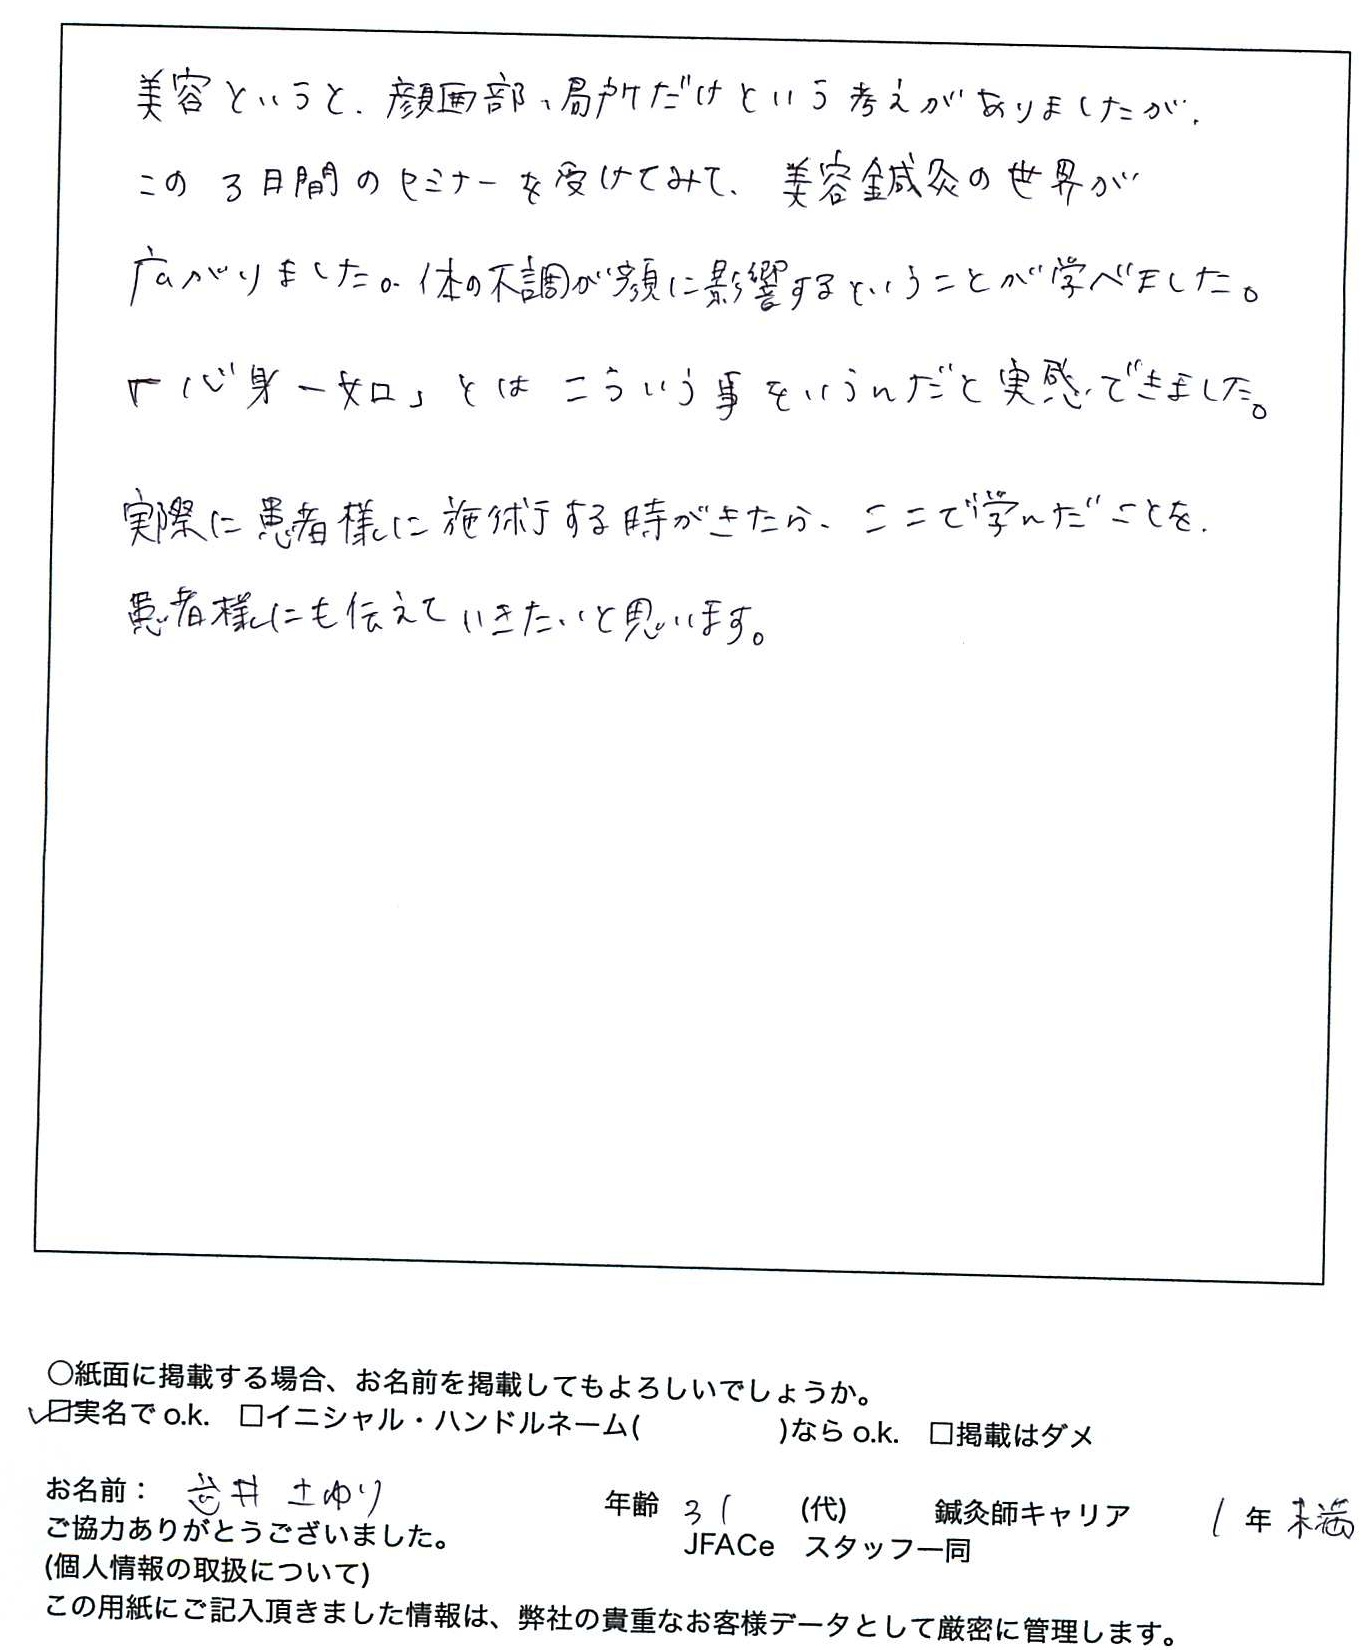 美容というと、顔面部、局所だけという考えがありましたが、
この3日間のセミナーを受けてみて、美容鍼灸の世界が
広がりました。体の不調が顔に影響するということが学べました。
「心身一如」とはこういう事をいうんだと実感できました。
実際に患者様に施術する時がきたら、ここで学んだことを、
患者様にも伝えていきたいと思います。
○紙面に掲載する場合、お名前を掲載してもよろしいでしょうか。
☑実名でo.k. □イニシャル・ハンドルネーム( )ならo.k. □掲載はダメ
お名前： 井 さゆり 年齢 31 (代) 鍼灸師キャリア 1年未満
ご協力ありがとうございました。 JFACe スタッフ一同
(個人情報の取扱について)
この用紙にご記入頂きました情報は、弊社の貴重なお客様データとして厳密に管理します。